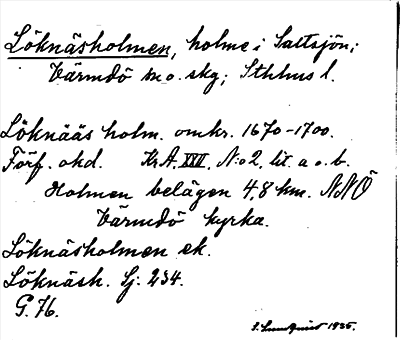 Löknäsholmen, holme i Saltsjön;
Värmdö sn o. skg; Sthlms l.
Löknääs holm. omkr. 1670-1700.
Förf. okd. KrA. XXX, N:o 2, lit. a o. b.
Holmen belägen 4,8 km. NNÖ
Värmdö kyrka.
Löknäsholmen ek.
Löknäsh. Sj: 234.
G. 76.
1935.